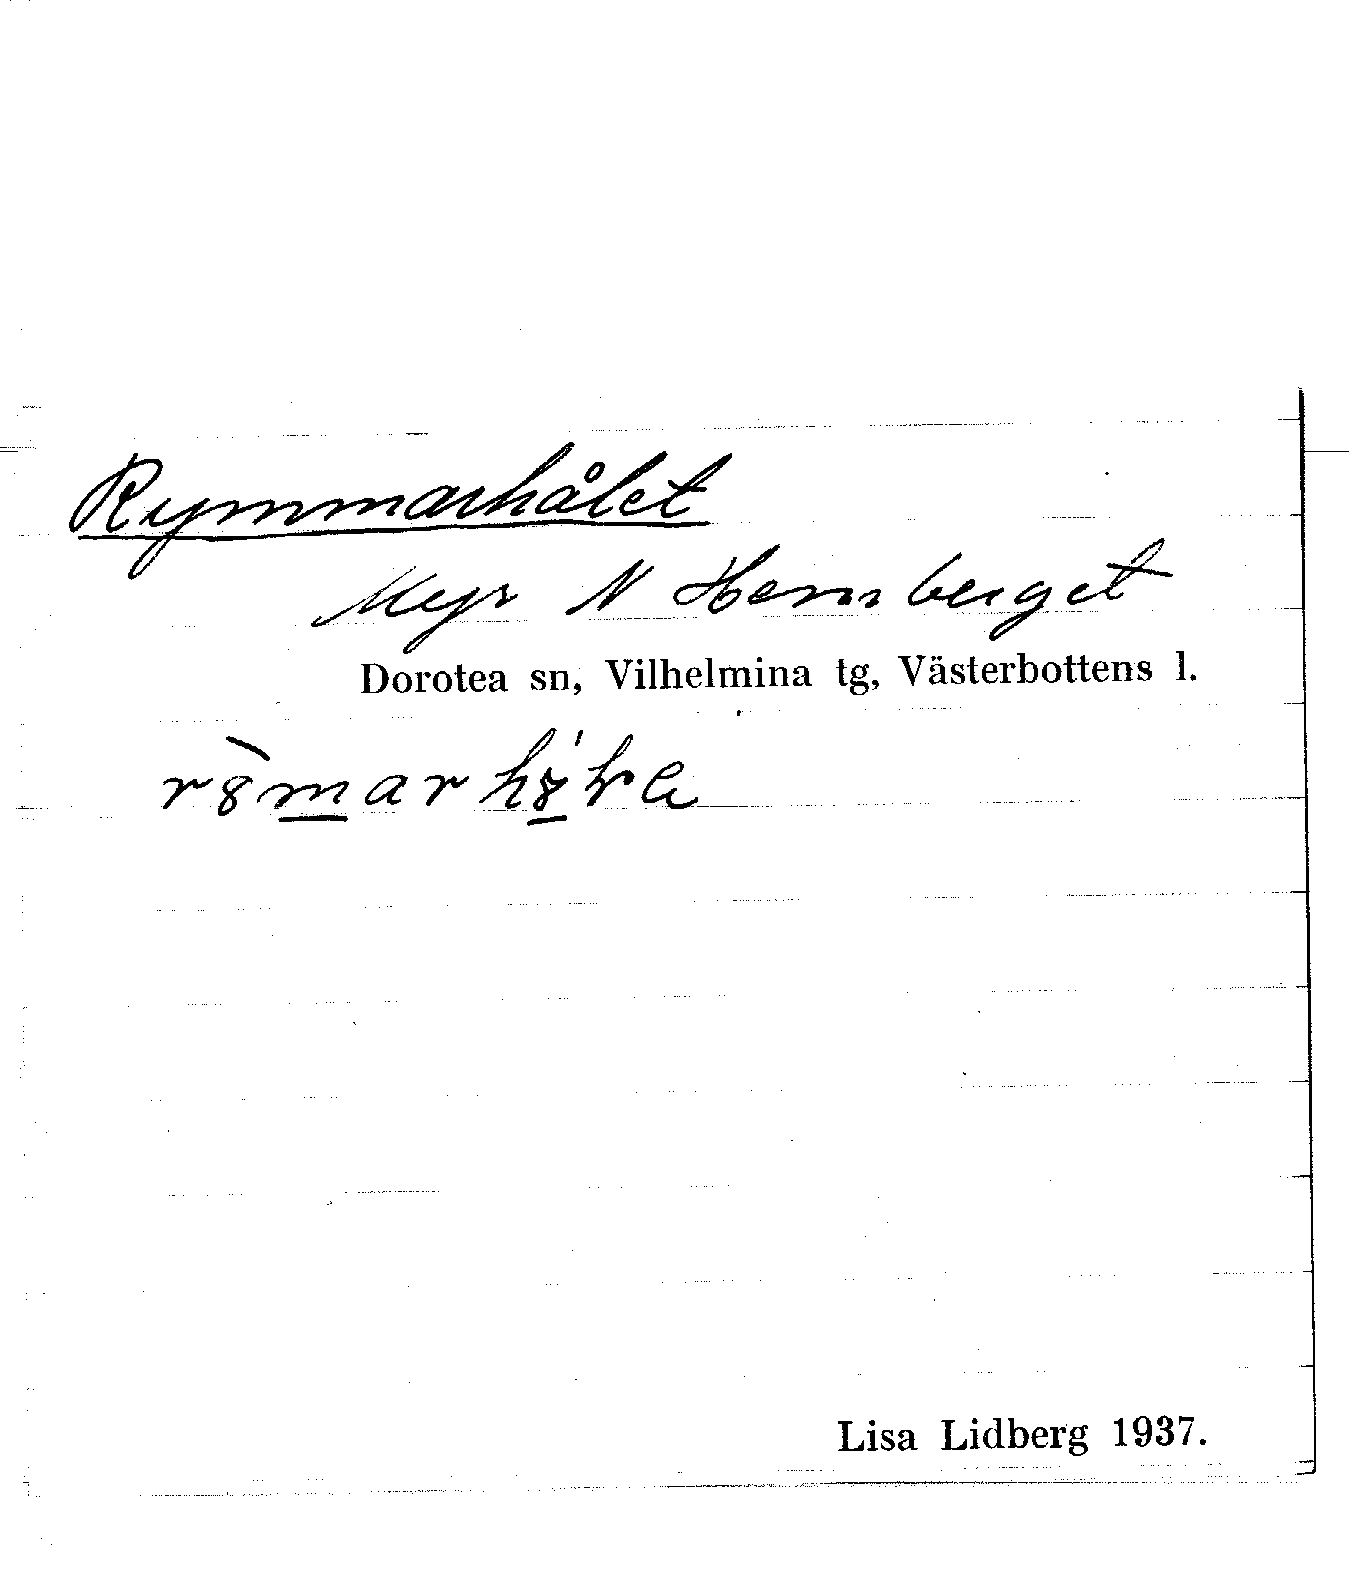 Rymmarhålet
Myr N Hemberget
Dorotea sn, Vilhelmina tg, Västerbottens l.
Lisa Lidberg 1937.